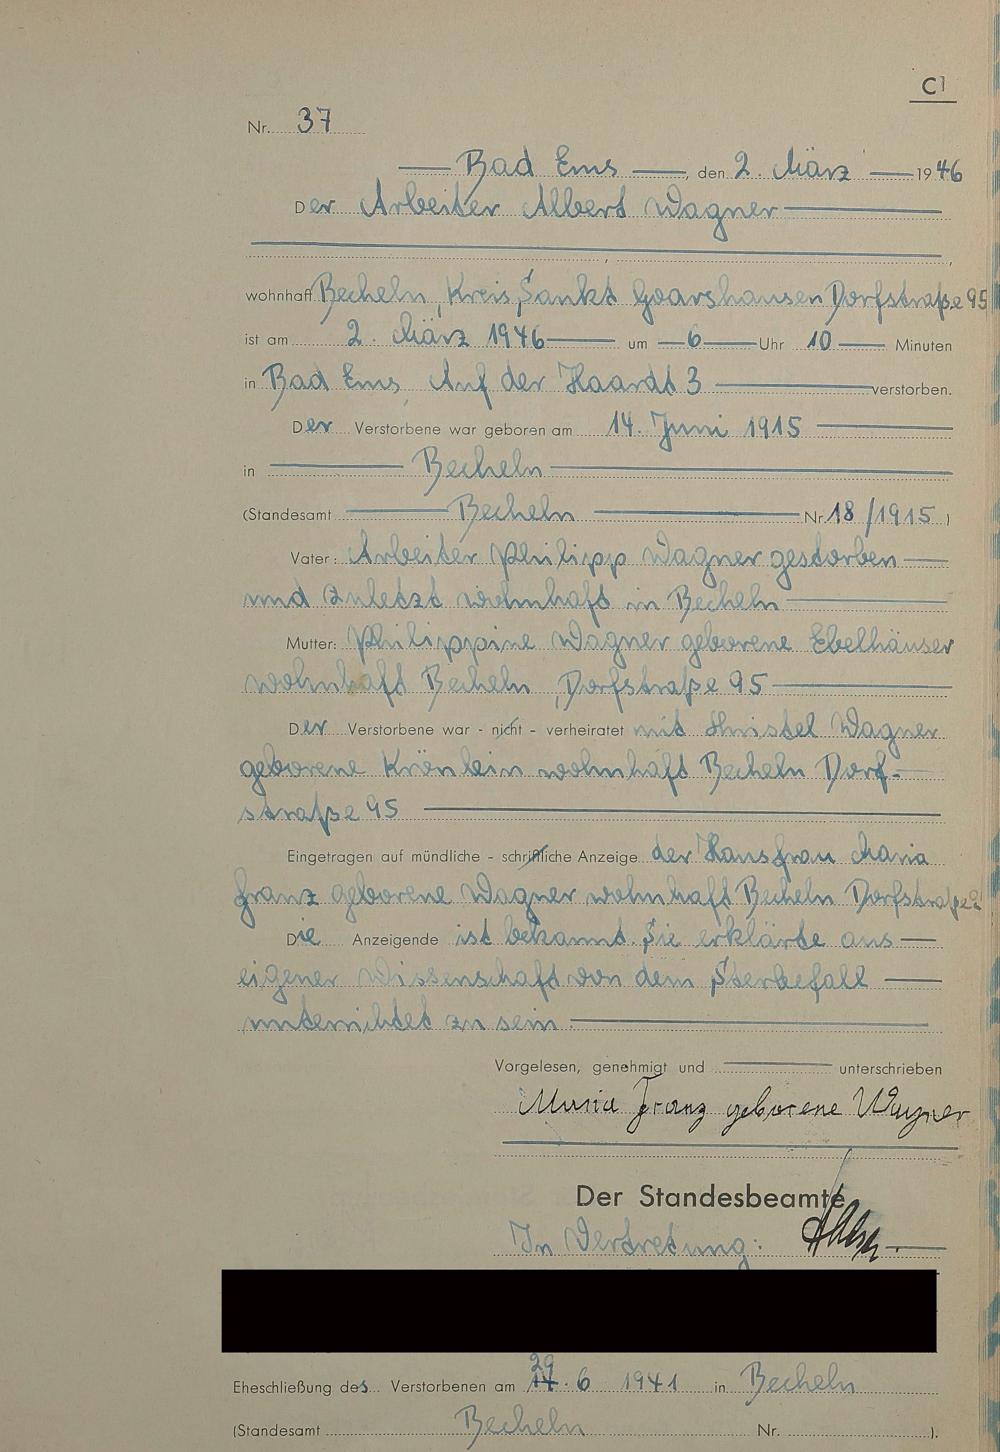 C1
Nr. 37
Bad Ems, den 2. März 1946
Der Arbeiter Albert Wagner
wohnhaft Becheln, Kreis Sankt Goarshausen Dorfstraße 95
ist am 2. März 1946 um 6 Uhr 10 Minuten
in Bad Ems, Auf der Haardt 3 verstorben.
Der Verstorbene war geboren am 14. Juni 1915
in Becheln
(Standesamt Becheln Nr. 18/1915)
Vater: Arbeiter Philipp Wagner gestorben
und zuletzt wohnhaft in Becheln
Mutter: Philippine Wagner geborene Ebelhäuser
wohnhaft Becheln, Dorfstraße 95
Der Verstorbene war - nicht - verheiratet mit Christel Wagner
geborene Krönlein wohnhaft Becheln Dorf-
straße 95
Eingetragen auf mündliche - schriftliche Anzeige der Hausfrau Maria
Franz geborene Wagner wohnhaft Becheln Dorfstraße
Die Anzeigende ist bekannt. Sie erklärte aus
eigener Wissenschaft von dem Sterbefall
unterrichtet zu sein
Vorgelesen, genehmigt und unterschrieben
Maria Franz geborene Wagner
Der Standesbeamte
In Vertretung:
Eheschließung des Verstorbenen am 14. 29 6 1941 in Becheln
(Standesamt Becheln Nr. ).